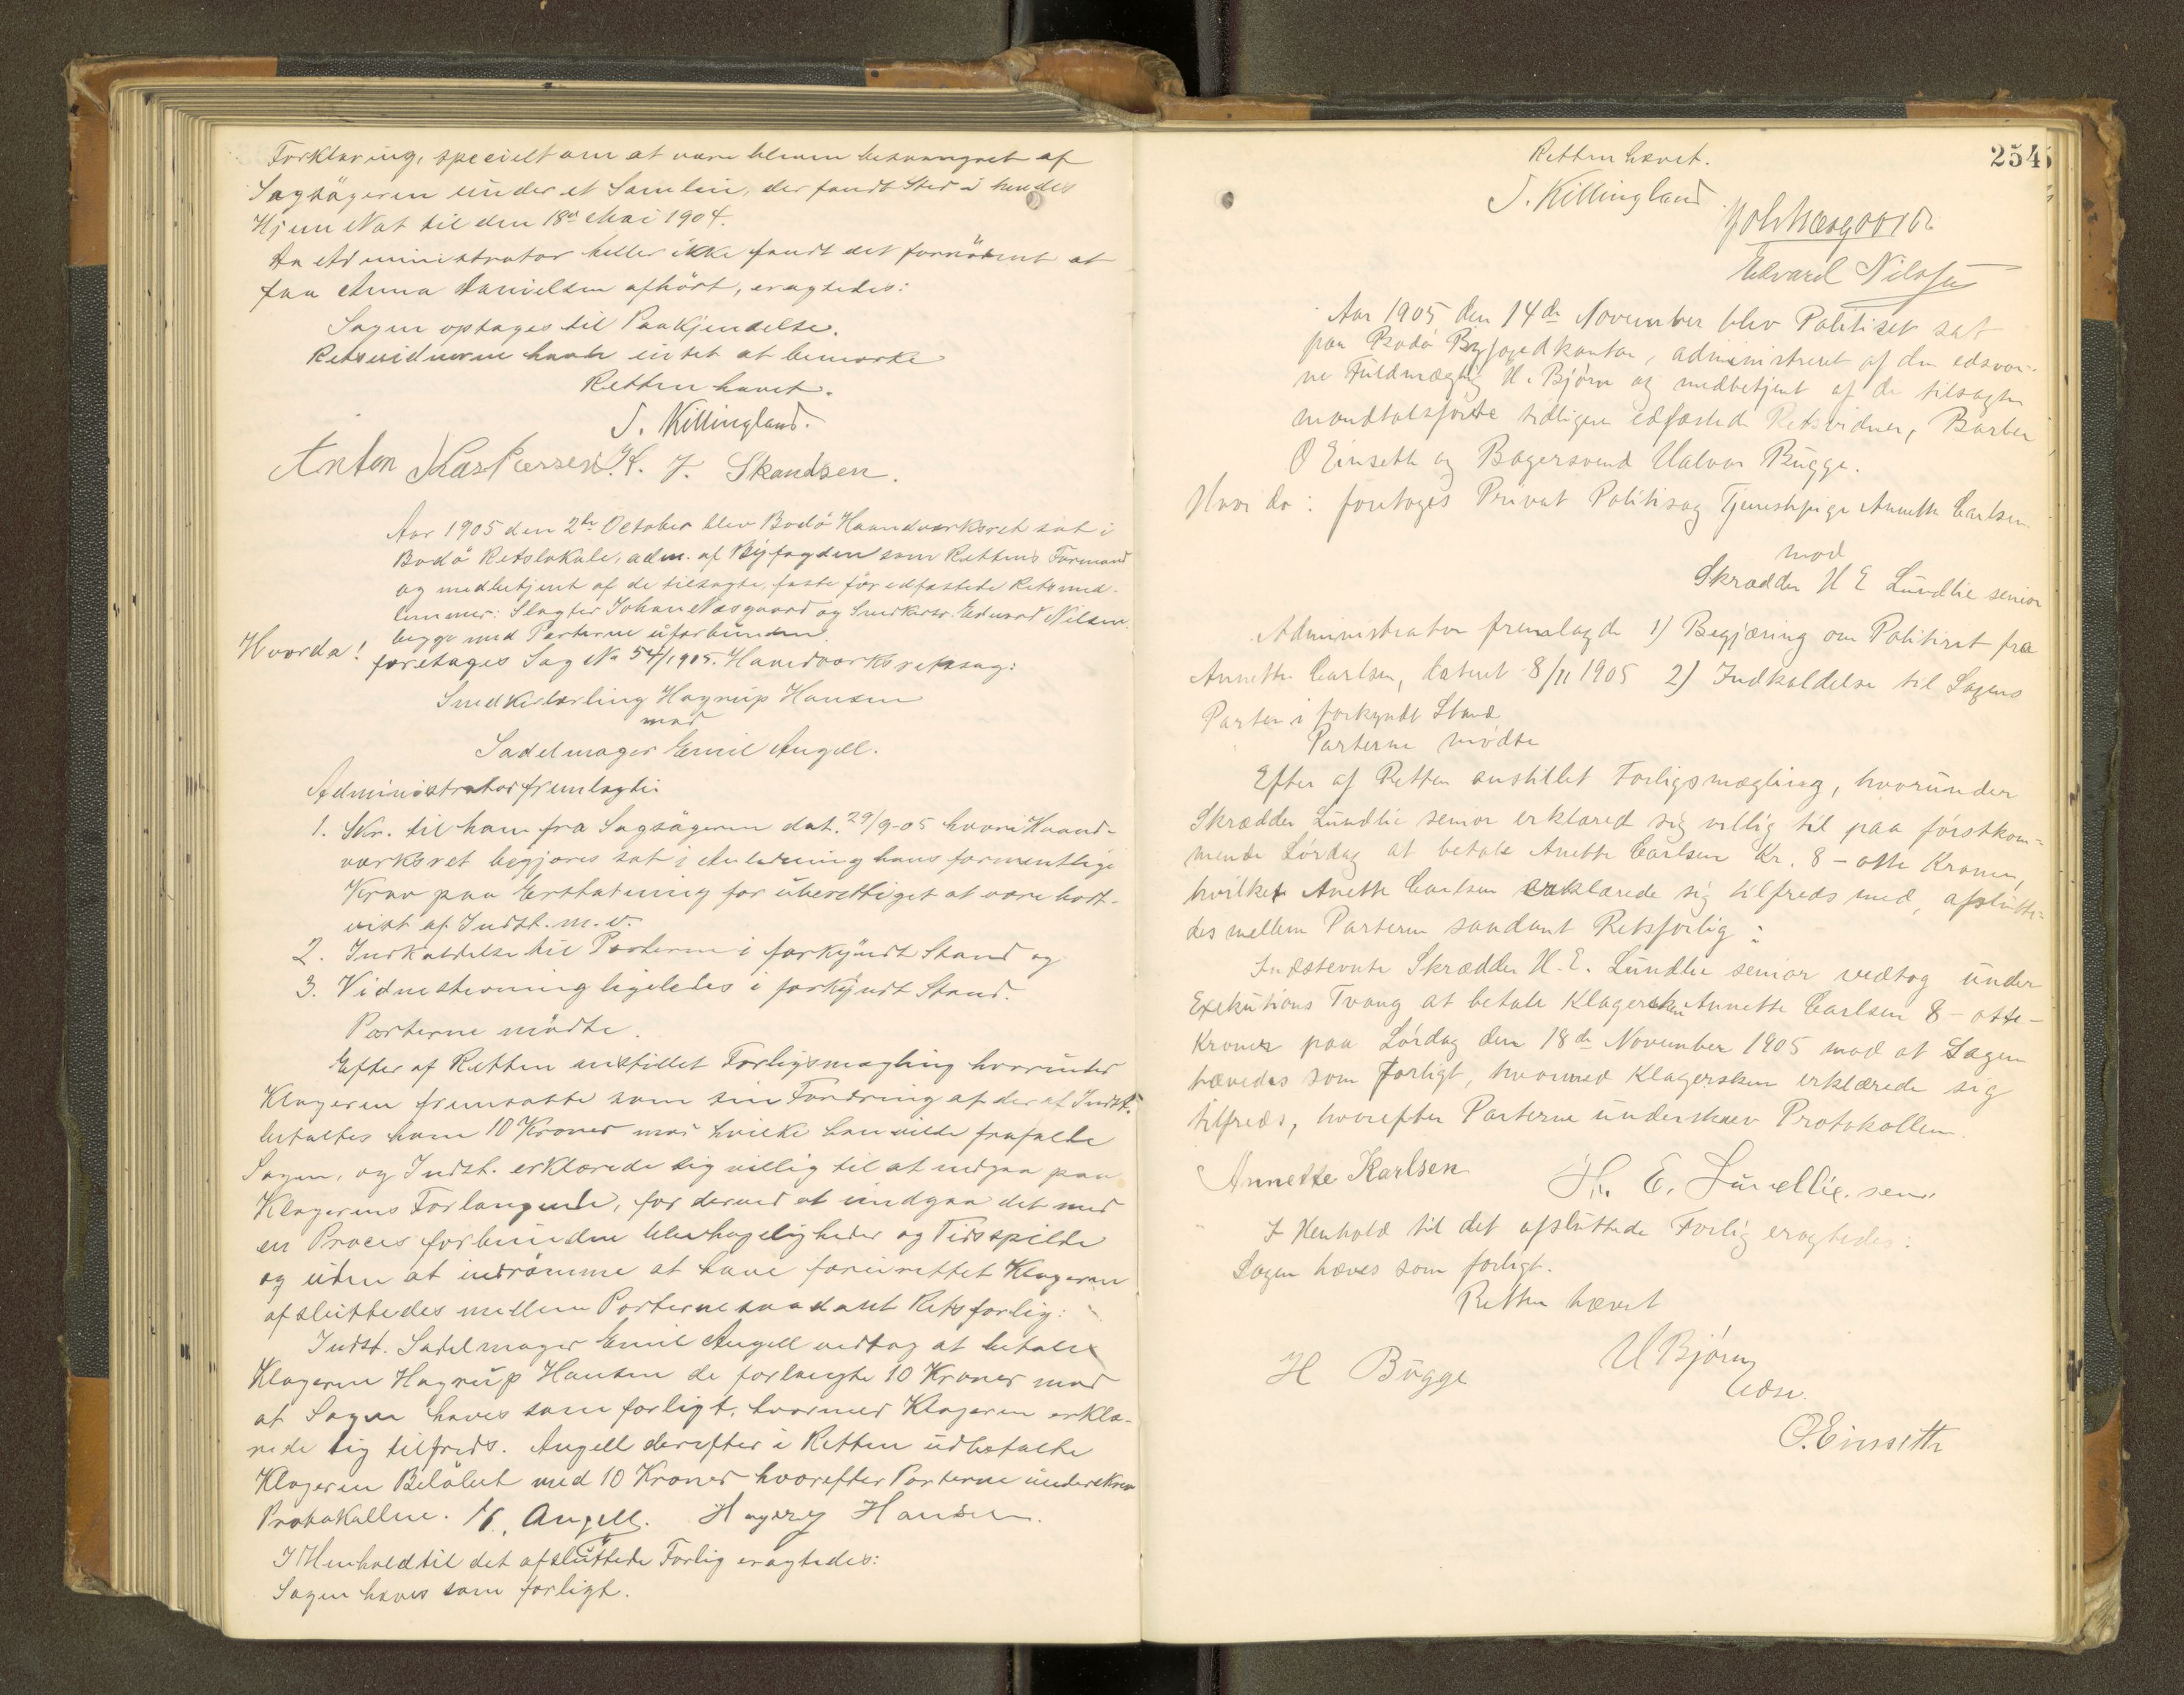 Forklaring, specielt om at være bleven besvangret af
Sagsögeren under et Samleie, der fandt Sted i hendes
Hjem Nat til den 18de Mai 1904.
Da Administrator heller ikke fandt det fornödent at
faa Anna Danielsen afhört, eragtedes:
Sagen optages til Paakjendelse.
Retsvidnerne havde intet at bemærke
Retten hævet.
S. Killingland.
Anton Kaspersen. K. J. Skandsen.
Aar 1905 den 2de October blev Bodö Haandværksret sat i
Bodö Retslokale, adm. af Byfogden som Rettens Formand
og medbetjent af de tilsagte, faste för edfæstede Retsmed-
lemmer: Slagter Johan Næsgaard og Snedkersv. Edvard Nilsen,
begge med Parterne uforbunden.
Hvorda! foretages Sag No 54/1905. Haandværksretssag:
Snedkerlærling Hagrup Hansen
mod
Sadelmager Emil Angell.
Administrator fremlagde:
1. Skr. til ham fra Sagsögeren dat. 29/9-05 hvori Haand-
værksret begjæres sat i Anledning hans formentlige
Krav paa Erstatning for uberettiget at være bort-
vist af Indst. m. v.
2. Indkaldelse til Parterne i forkyndt Stand og
3. Vidnestevning ligeledes i forkyndt Stand.
Parterne mödte.
Efter af Retten anstillet Forligsmægling hvorunder
Klageren fremsatte som sin Fordring at der af Indst.
betaltes ham 10 Kroner mod hvilke han vilde frafalde
Sagen, og Indst. erklærede sig villig til at indgaa paa
Klagerens Forlangende, for derved at undgaa det med
en Proces forbundne Ubehageligheder og Tidsspilde
og uden at indrömme at have forurettet Klageren
afsluttedes mellem Parterne saadant Retsforlig:
Indst. Sadelmager Emil Angell vedtog at betale
Klageren Hagrup Hansen de forlangte 10 Kroner mod
at Sagen hæves som forligt, hvormed Klageren erklæ-
rede sig tilfreds. Angell derefter i Retten udbetalte
Klageren Belöbet med 10 Kroner hvorefter Parterne underskrev
Protokollen. Angell. Hansen.
I Henhold til det afsluttede Forlig eragtedes:
Sagen hæves som forligt.
254
Retten hævet.
S. Killingland
Joh Næsgaard
Edvard Nilssen
Aar 1905 den 14de November blev Politiret sat
paa Bodö Byfogedkontor, administreret af den edsvor-
ne Fuldmægtig U. Bjørn og medbetjent af de tilsagte
mandtalsförte tidligere edfæstede Retsvidner, Barber
O Einseth og Bagersvend Halvor Bugge.
Hvor da: foretoges Privat Politisag Tjenestepige Annette Carlsen
mod
Skrædder H E Lundlie senior
Administrator fremlagde 1) Begjæring om Politiret fra
Annette Carlsen, dateret 8/11 1905 2) Indkaldelse til Sagens
Parter i forkyndt Stand
Parterne mödte
Efter af Retten anstillet Forligsmægling, hvorunder
Skrædder Lundlie senior erklæred sig villig til paa förstkom-
mende Lördag at betale Anette Carlsen Kr. 8 - otte Kroner,
hvilket Anette Carlsen erklærede sig tilfreds med, afslutte-
des mellem Parterne saadant Retsforlig:
Indstevnte Skrædder H. E. Lundlie senior vedtog under
Exekutions Tvang at betale Klagersken Annette Carlsen 8 - otte -
Kroner paa Lördag den 18de November 1905 mod at Sagen
hævedes som forligt, hvormed Klagersken erklærede sig
tilfreds, hvorefter Parterne underskrev Protokollen.
Annette Karlsen H. E. Lundlie. sen.
I Henhold til det afsluttede Forlig eragtedes:
Sagen hæves som forligt.
Retten hævet
H Bugge U Bjørn
O. Einseth